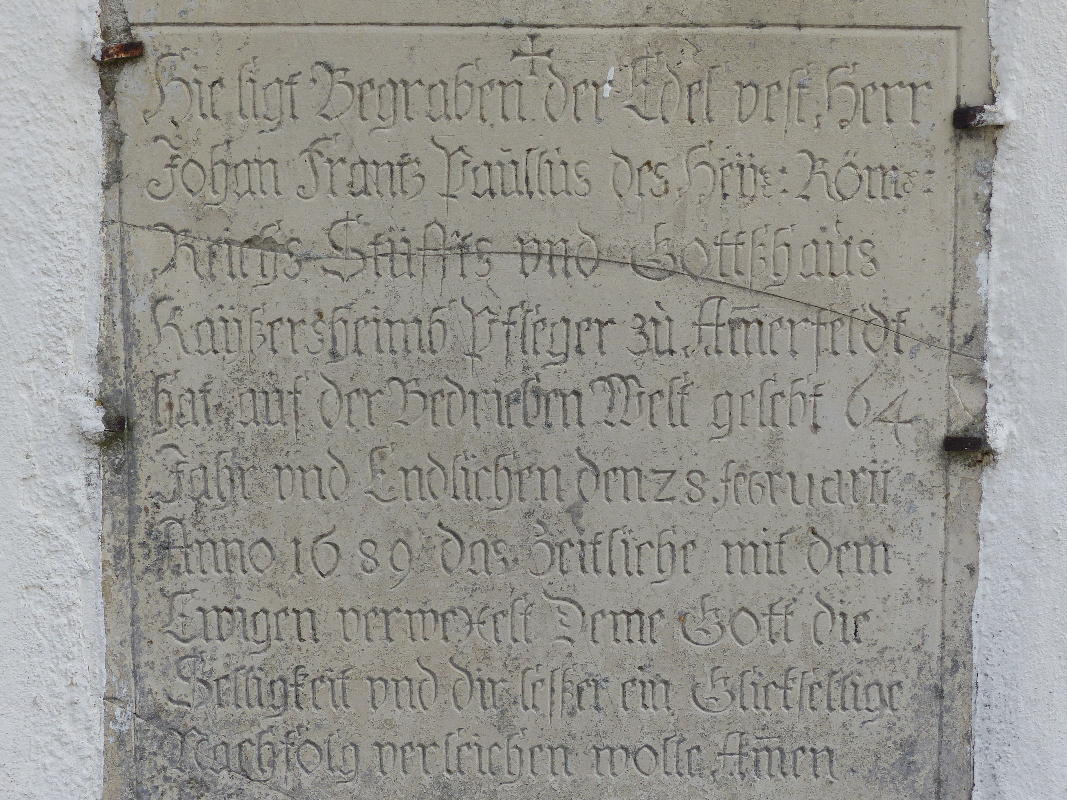 Hie ligt Begraben der Edel vest, Herr
Johan Frantz Paůllůs des Heÿ: Röm:
Reichs Stüffts vnd Gottßhaůs
Kaÿßersheimb Pfleger zů Am̅erfeldt
hat auf der Bedrieben Welt gelebt 64
Jahr vnd Endlichen den 28. februarii
Anno 1689 das Zeitliche mit dem
Ewigen verwexelt Deme Gott die
Selligkeit vnd dir leßer ein Glickseellige
Nachfolg verleichen wolle Am̅en